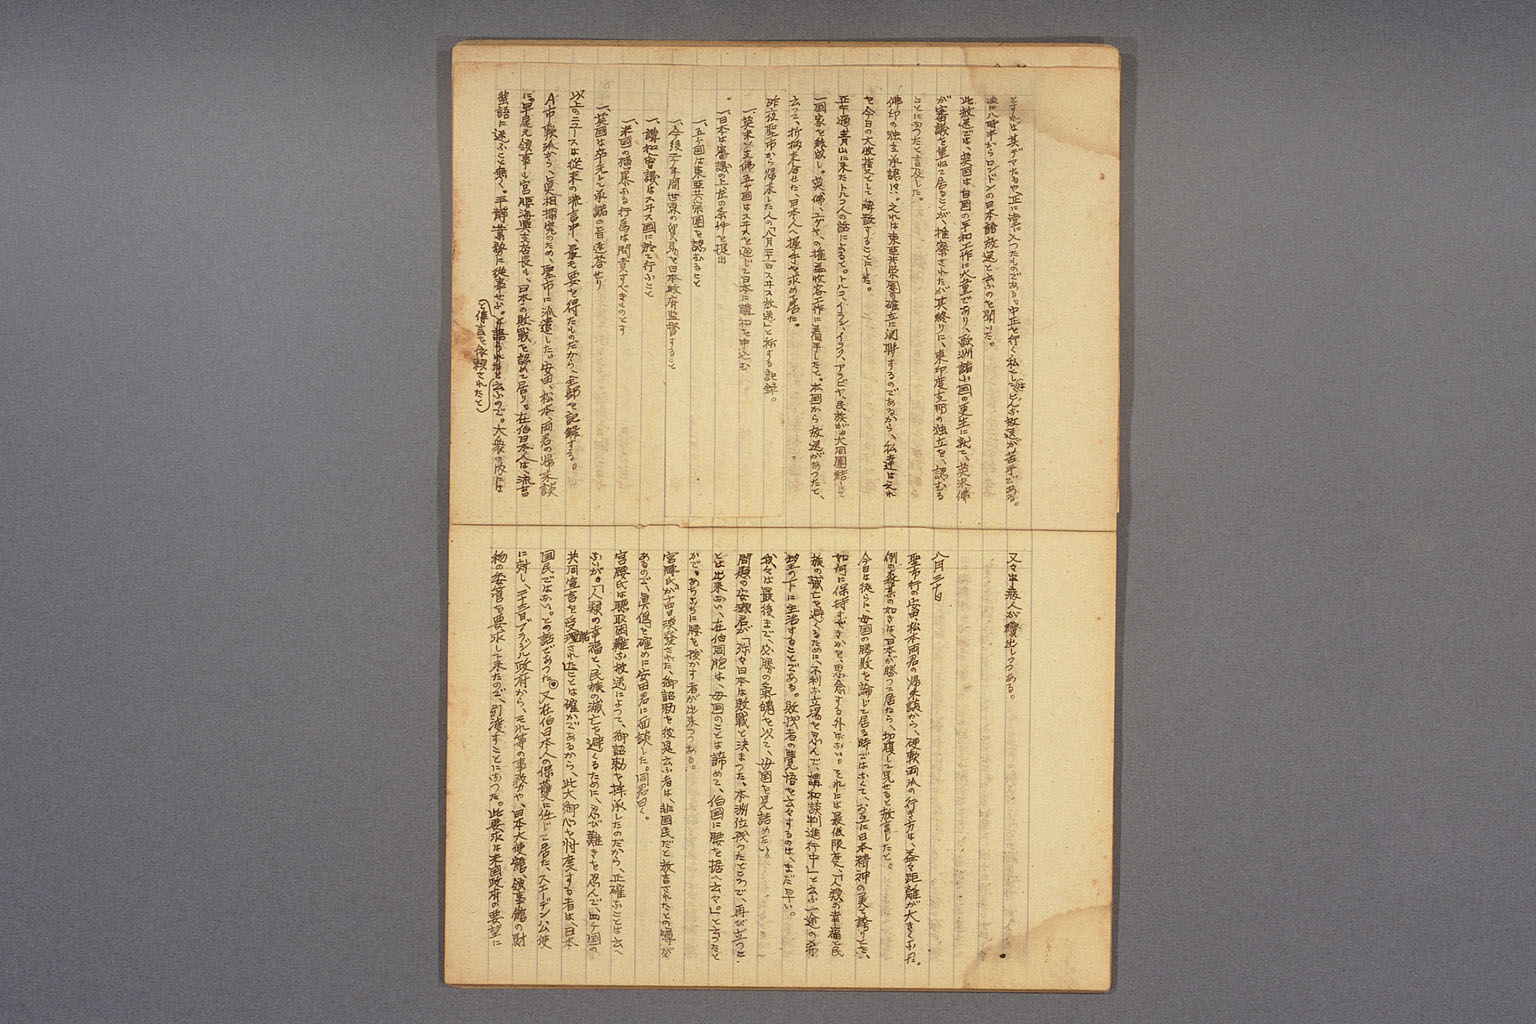 とすれば其デマたるや、正に堂に入つたものである。中正を行く私としては、どんな放送が苦手である。
夜に八時半からロンドンの日本語放送と云ふのを聞いた。
此放送では、英国は自国の平和工作に大童であり、欧洲諸小国の更生に就て、英米佛
が審議を重ねて居ることが、推察されたが其終りに、東印度支那の独立を、認むる
ことになつたと言及した。
佛印の独立承認!?。之れは東亜共栄圏の確立に関聯するのであるから、私達は之れ
を今日の大収獲として解散することにした。
正午過青山に来たトルコ人の話によると。トルコ、イラン、イラク、アラビヤ、民族が大同團結して
一国家を結成し。英、佛、ユダヤ、の権益收容工作に着手したと。本国から放送があつたと、
云つて、折柄来合せた、日本人へ握手を求めて居た。
昨夜聖市から帰来した人の「八月二十一日スヰス放送」と称する記録。
一、英米ソ支佛五ヶ国はスヰスを通じて日本に講和を申込む
一、日本は審議の上左の条件を提出
一、五ヶ国は東亜共栄圏を認むること
一、今後二ヶ年間世界の貿易を日本政府監督すること
一、講和会議はスヰス国に於て行ふこと
一、米国の横暴なる行為は問責すべきものとす
一、英国は卒先して承諾の旨返答せり
以上のニュースは従来の流言中、最も要を得たものだから、全部を記録する。
A市敗派から、真相探究のため、聖市に派遣した。安田、松本、両君の帰来談
に、早尾元領事も宮腰海興支店長も、日本の敗戦を認めて居り。在伯日本人は、流言
蜚語に迷ふこと無く。平静業務に従事せよ。と語られたと云ふので。大衆の内には
(と傳言を依頼されたと)
又々半病人が續出しつゝある。
八月三十日
聖市行の安田、松本両君の帰来談から、硬軟両派の行き方は、益々距離が大きくなつた。
例の森某の如きは、日本が勝つて居たら、切腹して見せると放言したと。
今日は徒らに、母国の勝敗を論じて居る時ではなくて、お互に日本精神の美と誇りとを、
如何に保持すべきかを、思念する外はない。それには最低限度、「人類の幸福と民
族の滅亡を避くるために、不利な立場を忍んで、講和談判進行中」と云ふ一途の希
望の下に生活することである。敗残者の覚悟を云々するのは、まだ早い。
我々は最後まで、必勝の気魄を以て、母国を見詰めたい。
問題の安瀬君が「弥々日本は敗戦と決まつた、本洲位残つたところで、再び立つこ
とは出来ない、在伯同胞は、母国のことは諦めて、伯国に腰を据へ云々。」と云つたと
かで。あちこちに腰を抜かす者が出来つゝある。
宮腰氏が十四日渙発された、御詔勅を彼是云ふ者は、非国民だと放言されたとの噂が
あるので、真偽を確めに安田君に面談した。同君曰く。
宮腰氏は聴取困難な放送によつて、御詔勅を拝承したのだから、正確なことは云へ
ないが。「人類の幸福と、民族の滅亡を避くるために、忍び難きを忍んで、四ヶ国の
共同宣言を受諾された」ことは確かであるから、此大御心を忖度する者は、日本
国民ではない。との話であつた。又在伯日本人の保護に任じて居た、スエーデン公使
に対し、二十三日ブラジル政府から、それ等の事務や、日本大使館、領事館の財
物の安管を要求して来たので、引渡すことになつた。此要求は米国政府の要望に